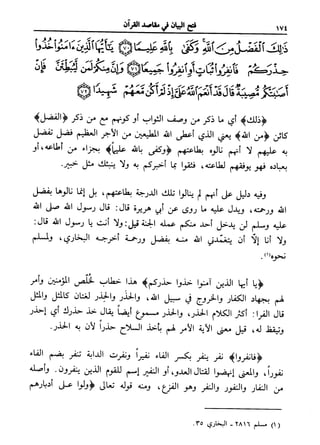 ١٧٤ فتح البيان في مقاصد القرآن
ذَٰلِكَ ٱلْفَضْلُ مِنَ ٱللَّهِ وَكَفَىٰ بِٱللَّهِ عَلِيمًا ﴿٧٠﴾ يَٰٓأَيُّهَا ٱلَّذِينَ ءَامَنُوا۟ خُذُوا۟
حِذْرَكُمْ فَٱنفِرُوا۟ ثُبَاتٍ أَوِ ٱنفِرُوا۟ جَمِيعًا ﴿٧١﴾ وَإِنَّ مِنكُمْ لَمَن لَّيُبَطِّئَنَّ فَإِنْ
أَصَٰبَتْكُم مُّصِيبَةٌ قَالَ قَدْ أَنْعَمَ ٱللَّهُ عَلَىَّ إِذْ لَمْ أَكُن مَّعَهُمْ شَهِيدًا ﴿٧٢﴾
﴿ذلك﴾ أي ما ذكر من وصف الثواب أو كونهم مع من ذكر ﴿الفضل﴾
كائن ﴿من الله﴾ يعني الذي أعطى الله المطيعين من الأجر العظيم فضل تفضل
به عليهم لا أنهم نالوه بطاعتهم ﴿وكفى بالله عليماً﴾ بجزاء من أطاعه، أو
بعباده فهو يوفقهم لطاعته، فثقوا بما أخبركم به ولا ينبئك مثل خبير.
وفيه دليل على أنهم لم ينالوا تلك الدرجة بطاعتهم، بل إنما نالوها بفضل
الله ورحمته، ويدل عليه ما روى عن أبي هريرة قال: قال رسول الله صلى الله
عليه وسلم لن يدخل أحد منكم عمله الجنة قيل: ولا أنت يا رسول الله قال:
ولا أنا إلا أن يتغمدني الله منه بفضل ورحمة أخرجه البخاري، ولمسلم
نحوه⁽¹⁾.
﴿يا أيها الذين آمنوا خذوا حذركم﴾ هذا خطاب لخُلّص المؤمنين وأمر
لهم بجهاد الكفار والخروج في سبيل الله، والحَذَر والحِذر لغتان كالمَثَل والمِثل
قال الفرا: أكثر الكلام الحَذَر، والحِذر مسموع أيضاً يقال خذ حذرك أي إحذر
وتيقظ له، قيل معنى الآية الأمر لهم بأخذ السلاح حذراً لأن به الحذر.
﴿فانفروا﴾ نفر ينفر بكسر الفاء نفيراً ونفرت الدابة تنفر بضم الفاء
نفوراً، والمعنى إنهضوا لقتال العدو، أو النفير إسم للقوم الذين ينفرون. وأصله
من النفار والنفور والنفر وهو الفزع، ومنه قوله تعالى ﴿ولوا على أدبارهم
(١) مسلم ٢٨١٦ - البخاري ٣٥.